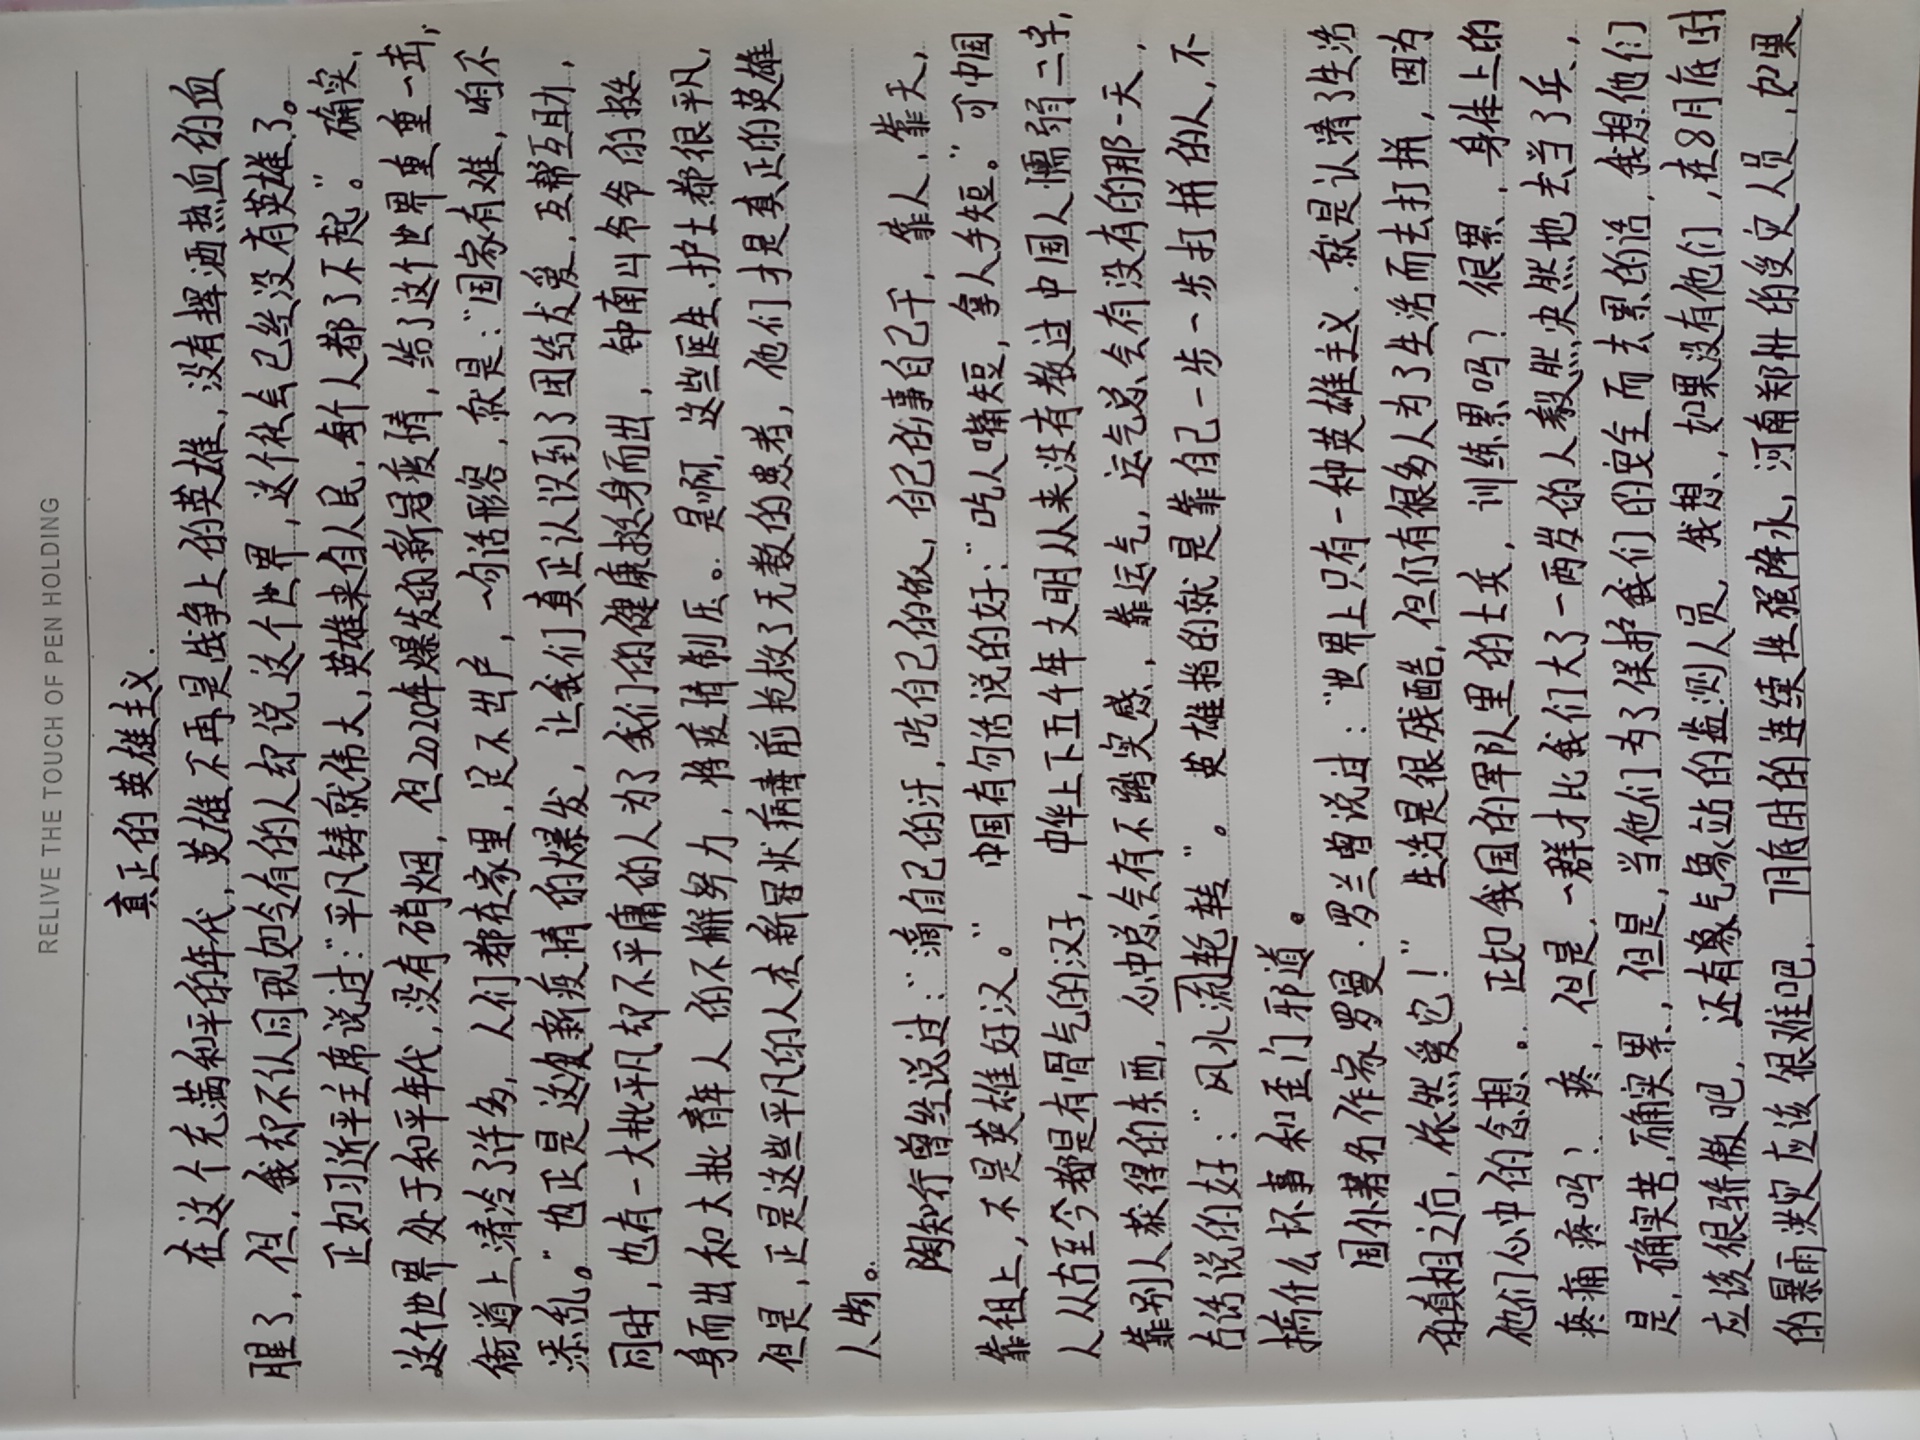 RELIVE THE TOUCH OF PEN HOLDING
真正的英雄主义.
在这个充满和平的年代,英雄不再是战争上的英雄,没有挥洒热血的血
腥了,但,我却不认同现如今有的人却说这个世界,这个社会已经没有英雄了。
正如习近平主席说过:"平凡铸就伟大,英雄来自人民,每个人都了不起。"确实,
这个世界处于和平年代,没有硝烟,但2020年爆发的新冠疫情,给了这个世界重重一击,
街道上清冷了许多,人们都在家里,足不出户,一句话形容,就是:"国家有难,咱不
添乱。"也正是这次新疫情的爆发,让我们真正认识到了团结友爱,互帮互助,
同时,也有一大批平凡却不平庸的人为了我们的健康挺身而出,钟南山爷爷的挺
身而出和大批青年人的不懈努力,将疫情制压。是啊,这些医生,护士都很平凡,
但是,正是这些平凡的人在新冠状病毒前抢救了无数的患者,他们才是真正的英雄
人物。
陶知行曾经说过:"滴自己的汗,吃自己的饭,自己的事自己干,靠人,靠天,
靠祖上,不是英雄好汉。"中国有句话说的好:"吃人嘴短,拿人手短。"可中国
人从古至今都是有骨气的汉子,中华上下五千年文明从来没有教过中国人懦弱二字,
靠别人获得的东西,心中总会有不踏实感,靠运气,运气总会有没有的那一天,
古话说的好:"风水流轮转"。英雄挡的就是靠自己一步一步打拼的人,不
搞什么坏事和歪门邪道。
国外著名作家罗曼·罗兰曾说过:"世界上只有一种英雄主义.就是认清了生活
的真相之后,依然爱它!"生活是很残酷,但们有很多人为了生活而去打拼,因为
他们心中的念想。正如我国的军队里的士兵,训练累吗?很累,身体上的
疼痛疼吗?疼,但是,一群才比我们大了一两岁的人毅然决然地去当了兵,
是,确实苦,确实累,但是,当他们为了保护我们的安全而去累的话,我想他们
应该很骄傲吧,还有气象站的监测人员,我想,如果没有他们,在8月底时
的暴雨灾应该很难吧,7月底时的连续性强降水,河南郑州的受灾人员,如果